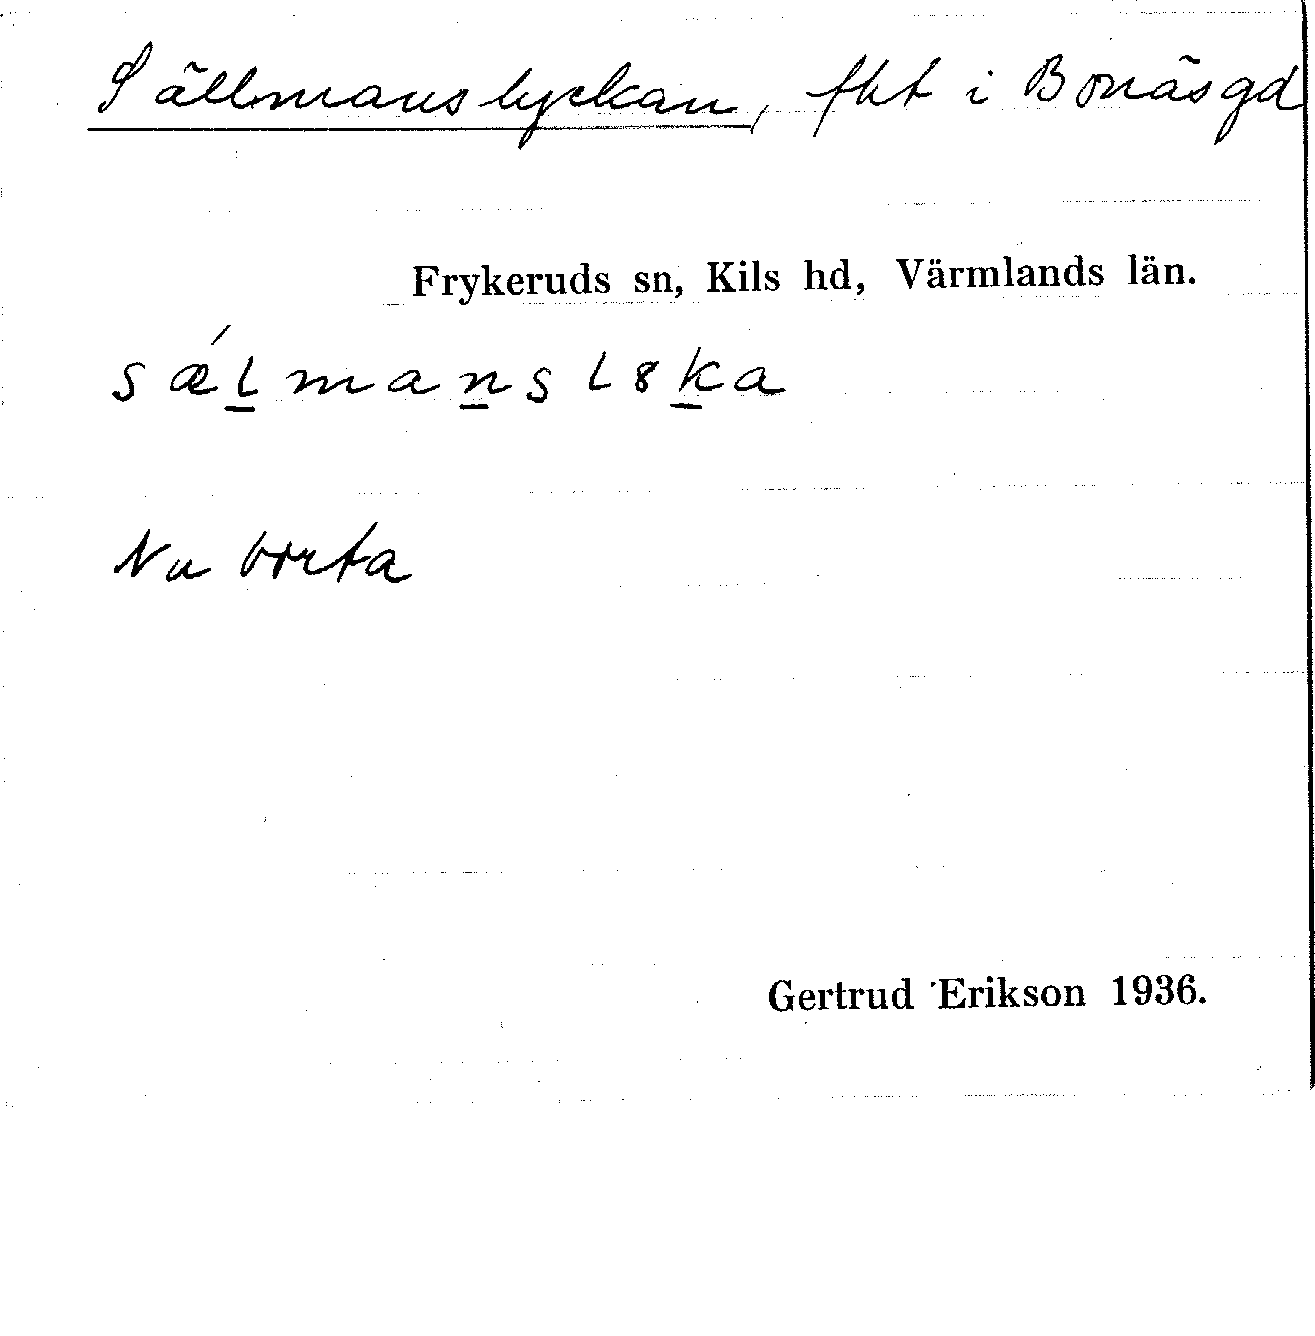 Sällmanslyckan, fht i Bonäsgd
Frykeruds sn, Kils hd, Värmlands län.
sǽl̲man̲sl8k̲a
Nu borta
Gertrud Erikson 1936.